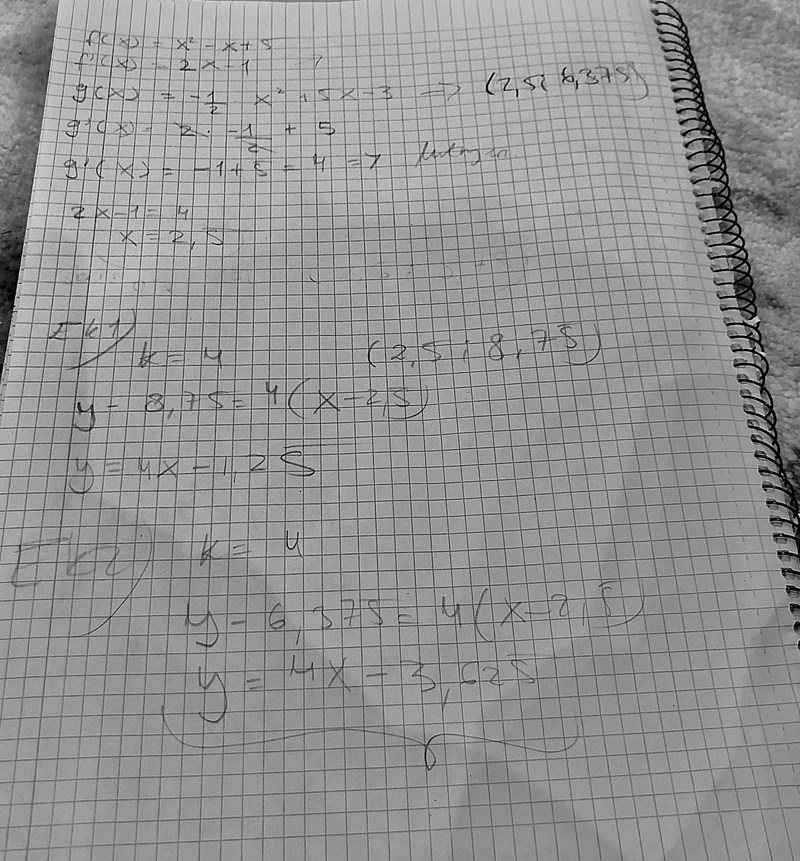 f(x) = x² - x + 5
f'(x) = 2x - 1
g(x) = -1/2 x² + 5x - 3 → (2,5; 6,375)
g'(x) = 2 · -1/2 + 5
g'(x) = -1 + 5 = 4 =>
2x - 1 = 4
x = 2,5
Ek1) k = 4 (2,5; 8,75)
y - 8,75 = 4(x - 2,5)
y = 4x - 1,25
Ek2) k = 4
y - 6,375 = 4(x - 2,5)
y = 4x - 3,625